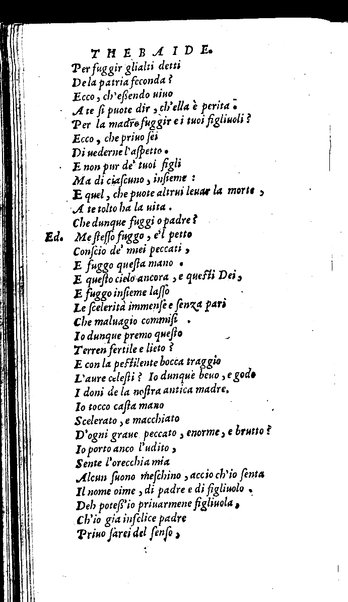 THEBAIDE.
Per fuggir glialti detti
De la patria feconda?
Ecco, ch'eßendo uiuo
A te ſi puote dir, ch'ella è perita.
Per la madre fuggir e i tuoi figliuoli?
Ecco, che priuo ſei
Di uederne l'aſpetto.
E non pur de' tuoi figli
Ma di ciaſcuno, inſieme:
E quel, che puote altrui leuar la morte,
A te tolto ha la uita.
Che dunque fuggi o padre?
Ed. Me ſteſſo fuggo, e'l petto
Conſcio de' miei peccati,
E fuggo queſta mano.
E queſto cielo ancora, e queſti Dei,
E fuggo inſieme laſſo
Le ſcelerità immenſe e ſenza pari
Che maluagio commiſi.
Io dunque premo queſto
Terren fertile e lieto?
E con la peſtilente bocca traggio
L'aure celeſti? Io dunque beuo, e godo
I doni de la noſtra antica madre.
Io tocco caſta mano
Scelerato, e macchiato
D'ogni graue peccato, enorme, e brutto?
Io porto anco l'udito,
Sente l'orecchia mia
Alcun ſuono meſchino, accio ch'io ſenta
Il nome oime, di padre e di figliuolo.
Deh poteſs'io priuarmene figliuola,
Ch'io gia infelice padre
Priuo ſarei del ſenſo,